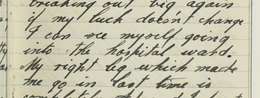 breaking out big again
if my luck doesn't change
I can see myself going
into the hospital ward.
My right leg which made
me go in last time is
completely